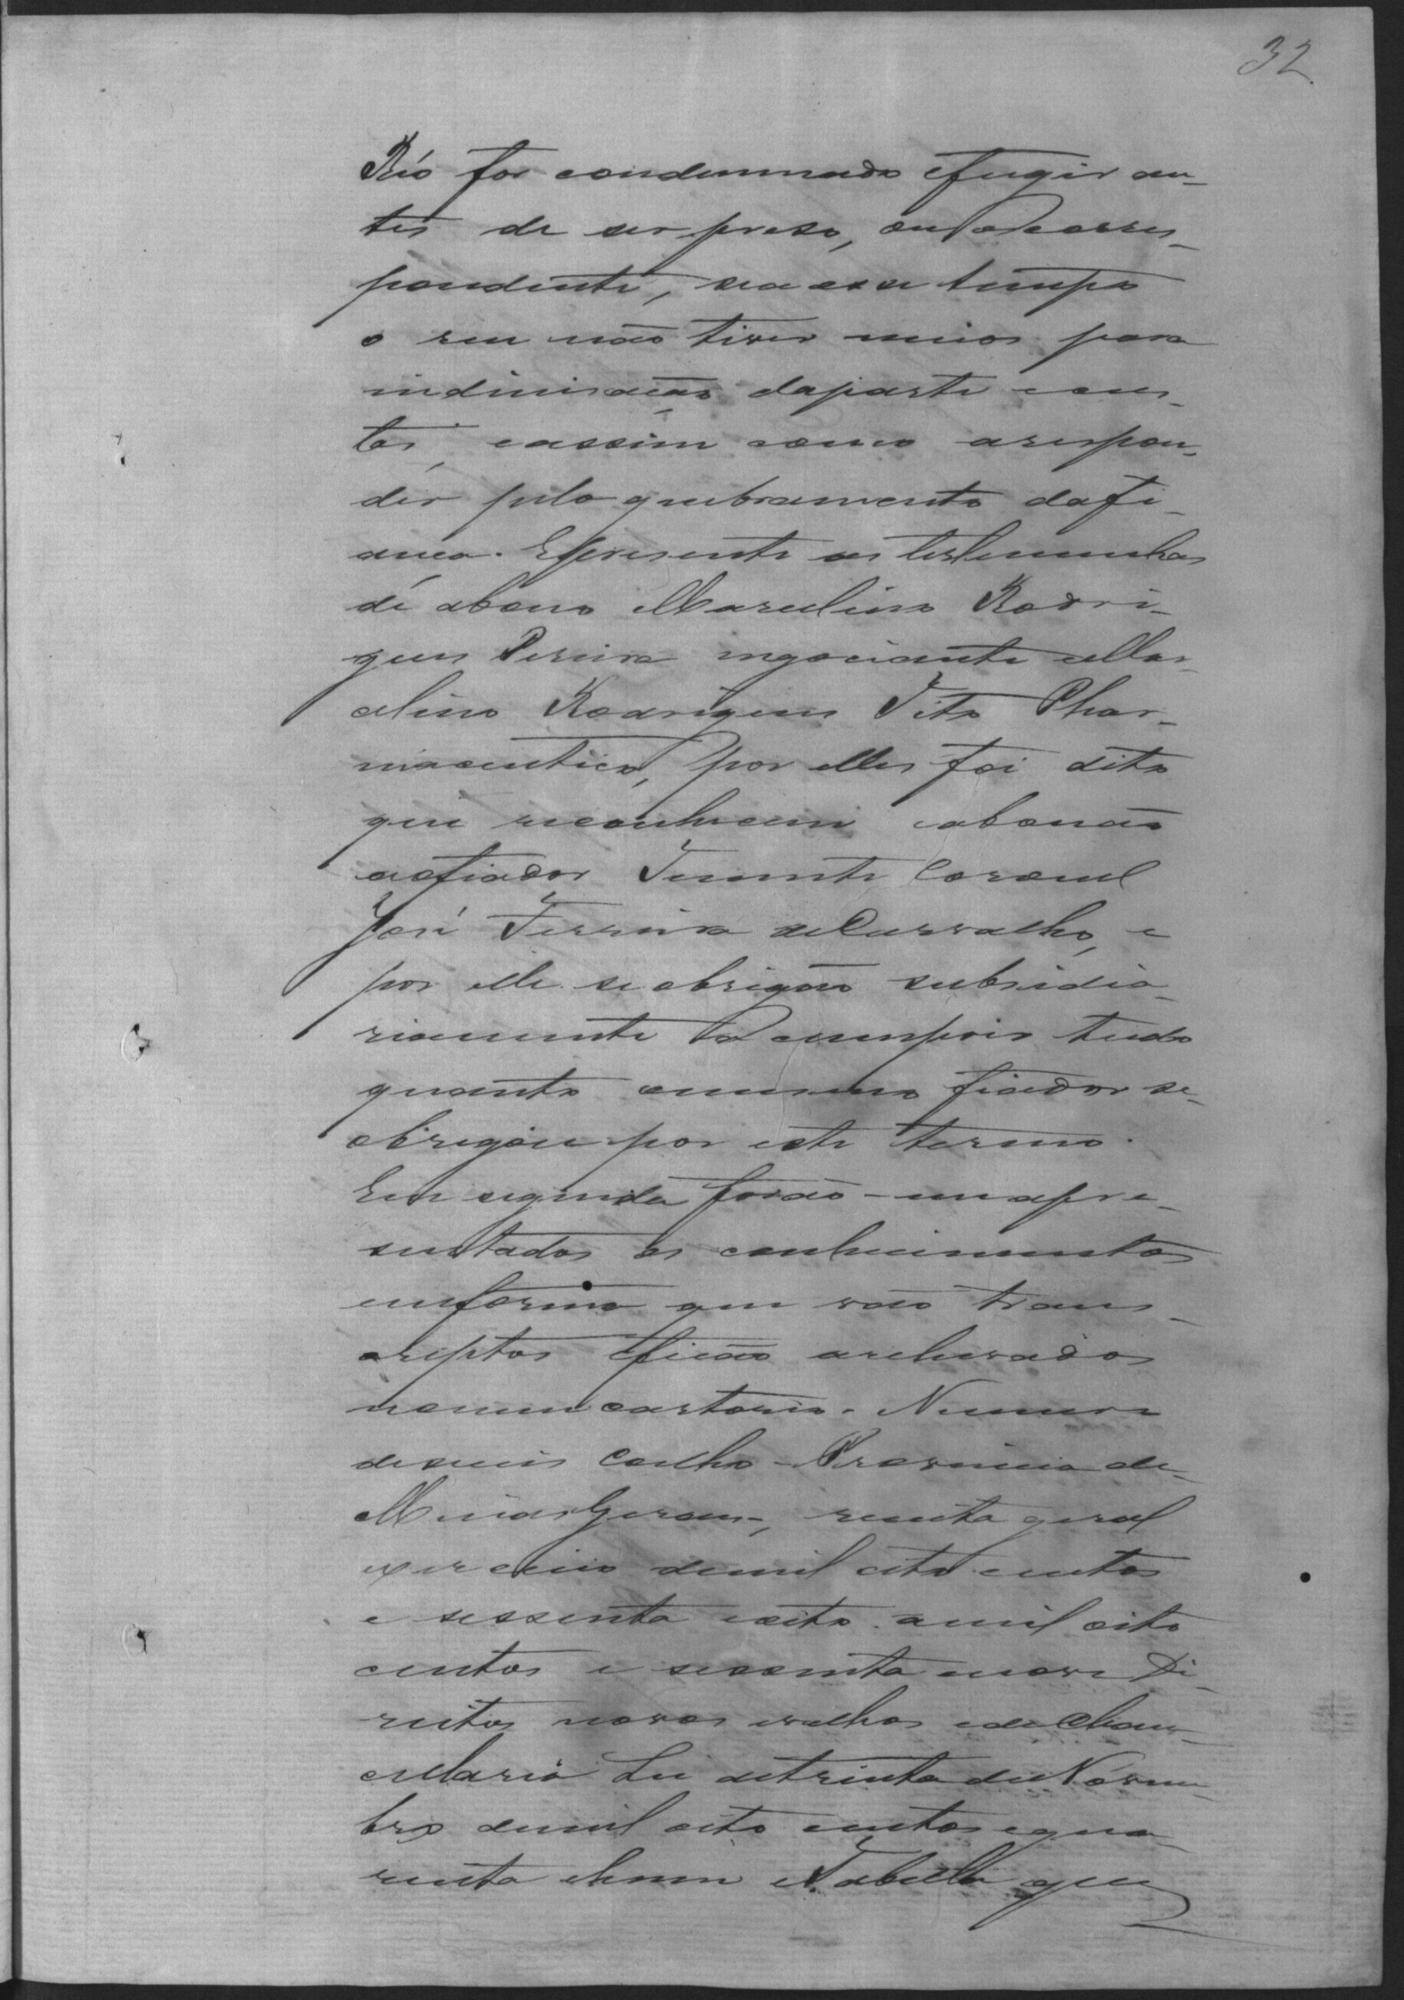 32
Réo for condemnado e fugir an-
tes de ser preso, ou a corres-
pondente, se a esse tempo
o reu não tiver meios para
indinisação da parte e cus-
tas, e assim como a respon-
der pelo quebramento da fi-
ança. E presente as testemunhas
de abono Marcelino Rodri-
gues Pereira negociante e Mar-
celino Rodrigues Tito Phar-
maceutico, por elles foi dito
que reconhecem e abonão
ao fiador Tenente Coronel
José Ferreira de Carvalho, e
por elle se obrigão subsidia-
riamente a cumprir tudo
quanto o mesmo fiador se
obrigou por este termo.
Em seguida forão-me apre-
sentados os conhecimentos
em forma que vão trans-
criptos e ficão archivados
no meu cartorio. Numero
Coelho - Provincia de
Minas Geraes, receita geral
exercicio de mil oito centos
e sessenta e oito a mil oito
centos e sessenta e nove Di-
reitos novos e velhos e de Chan-
cellaria Lei de trinta de Novem-
bro de mil oito centos e qua-
renta e hum e Tabella que